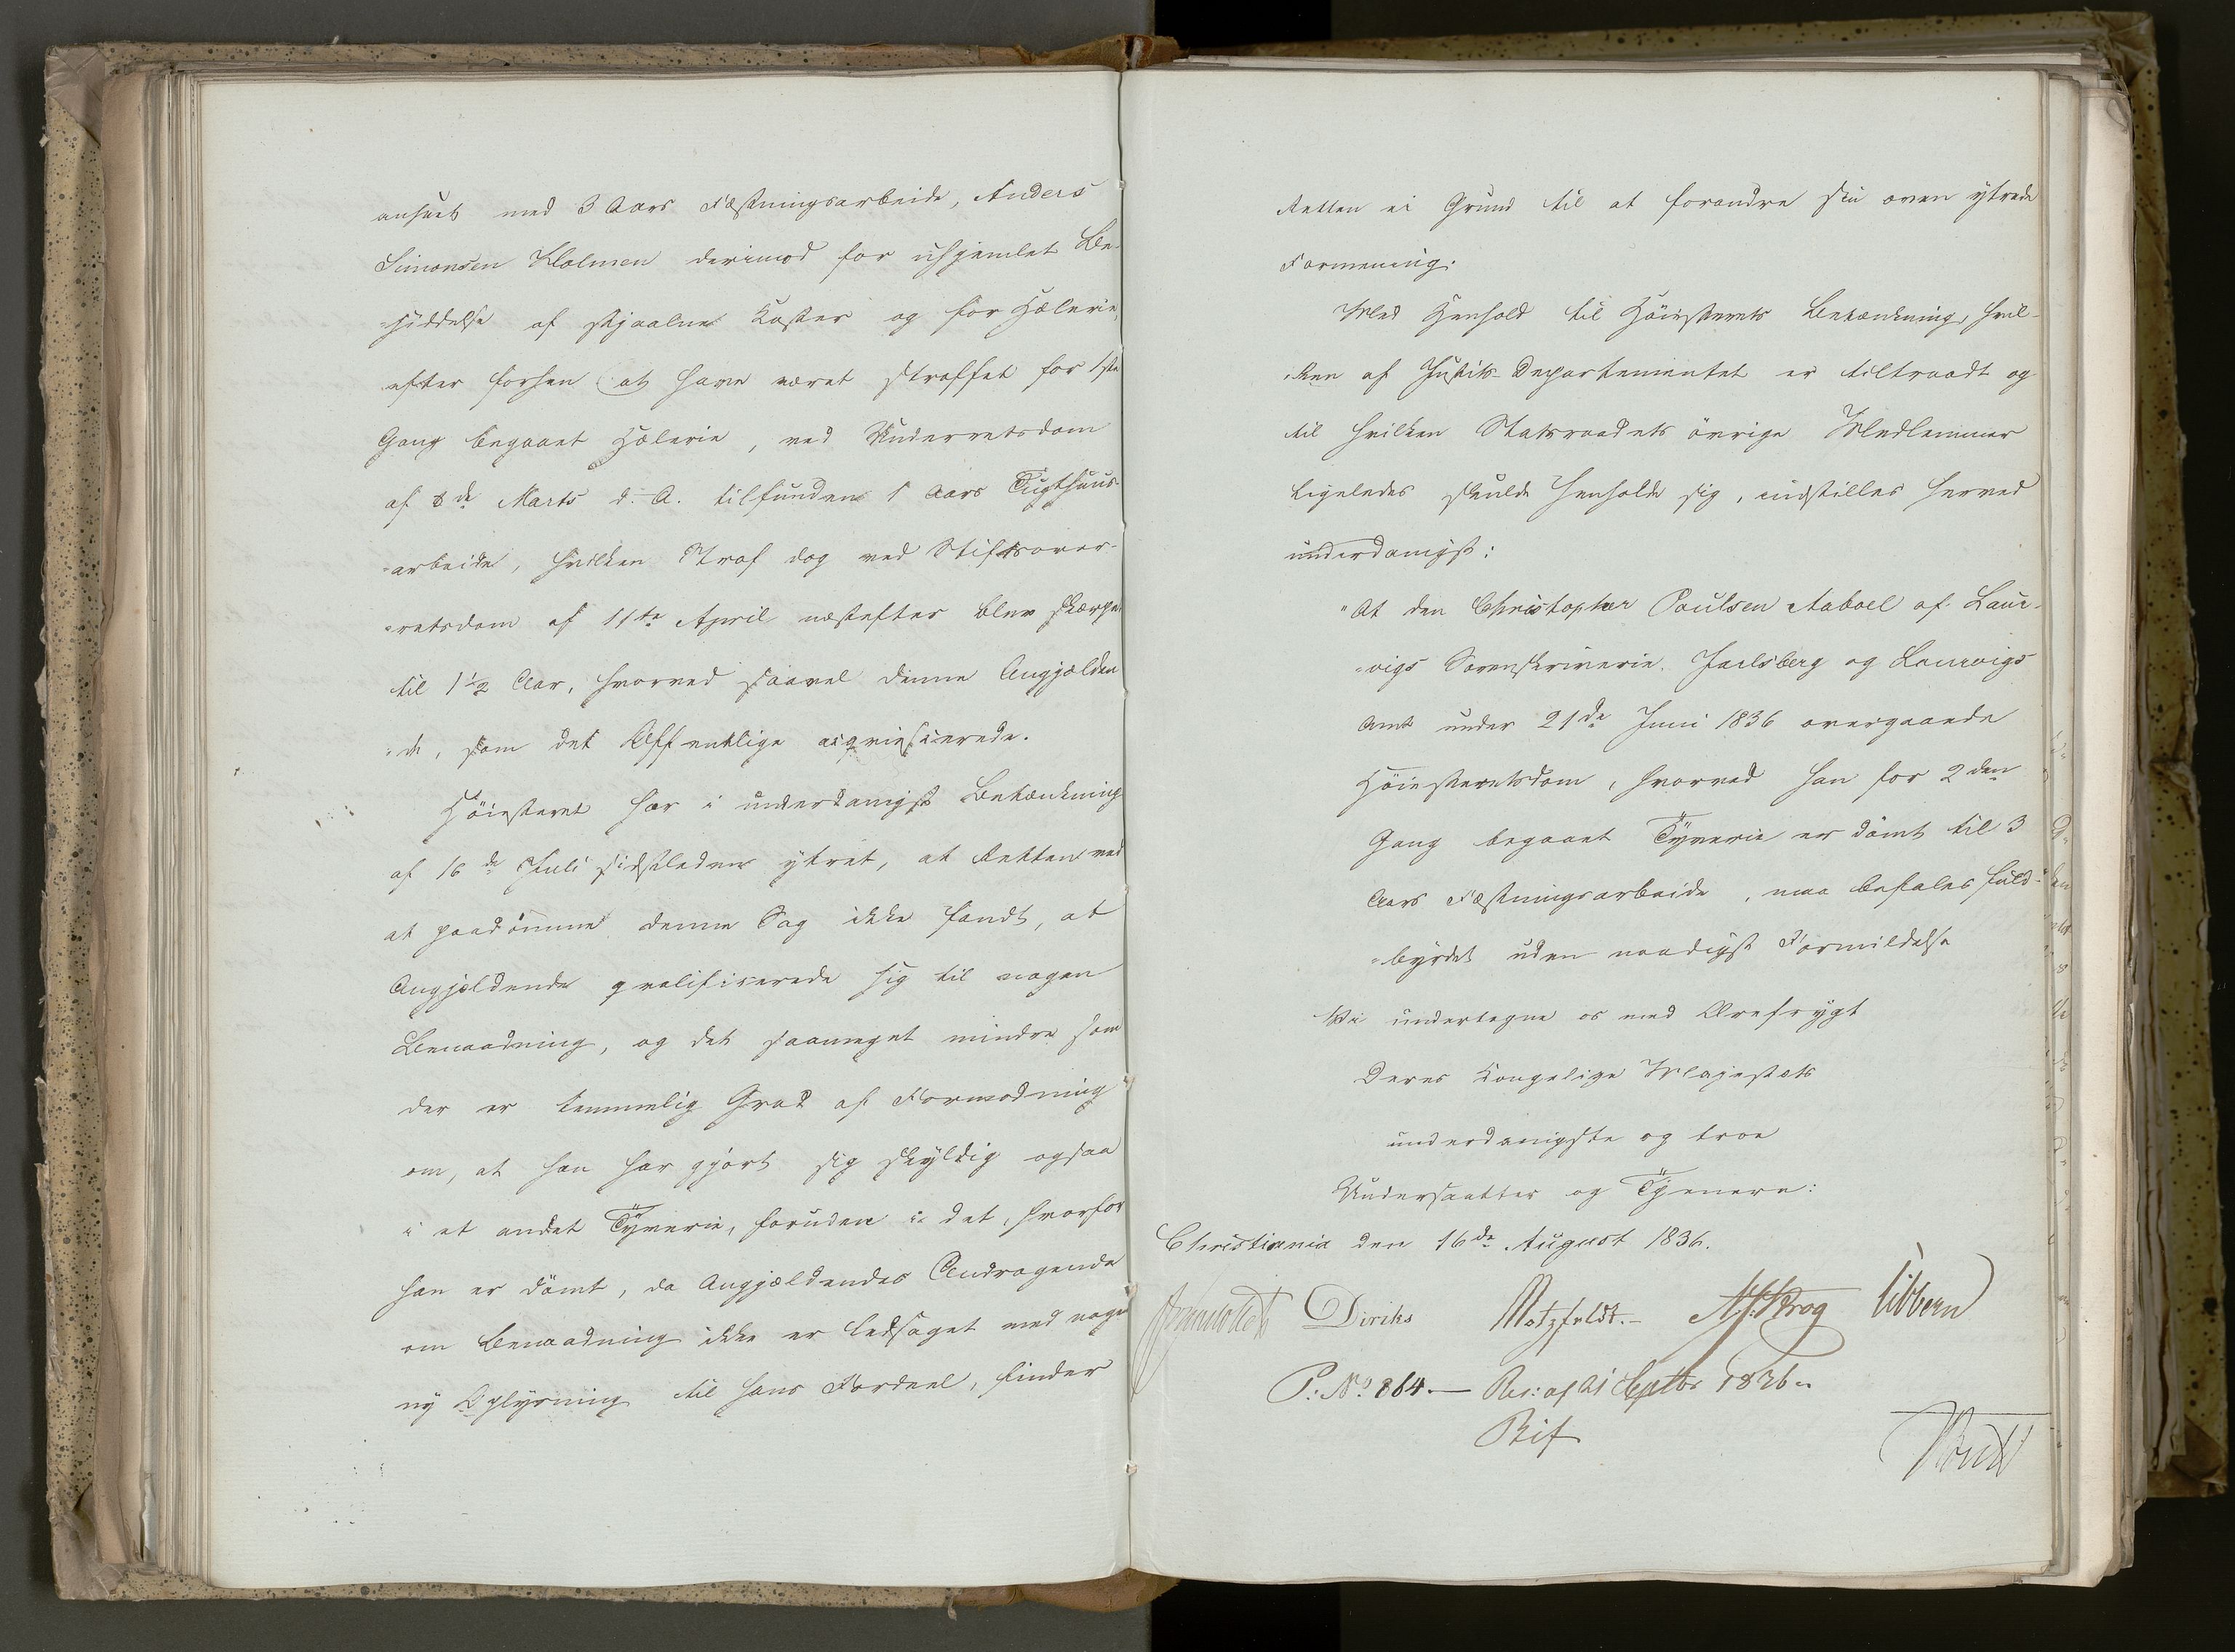 anseet med 3 Aars Fæstningsarbeide, Anders
Simonsen Holmen derimod for uhjemlet Be-
siddelse af stjaalne Koster og for Hæleri,
efter forhen at have været straffet for 1ste
Gang begaaet Hæleri, ved Underretsdom
af 8de Marts d. A. tilfunden 1 Aars Tugthuus-
arbeide, hvilken Straf dog ved Stiftsover-
=retsdom af 11te April næstefter blev skærpet
til 1½ Aar, hvorved saavel denne Angjælden
=de, som det Offentlige acqviescerede.
Høiesteret har i underdanigst Betænkning
af 16de Juli sidstleden ytret, at Retten ved
at paadømme denne Sag ikke fandt, at
Angjældende qvalificerede sig til nogen
Benaadning, og det saameget mindre som
der er temmelig Grad af Formodning
om, at han har gjort sig skyldig ogsaa
i et andet Tyverie, foruden i det, hvorfor
han er dømt, da Angjældendes Andragende
om Benaadning ikke er ledsaget med nogen
ny Oplysning til hans Fordeel, finder
Retten ei Grund til at forandre sin oven ytrede
Formening.
Med Henhold til Høiesterets Betænkning, hvil-
=ken af Justits-Departementet er tiltraadt og
til hvilken Statsraadets øvrige Medlemmer
ligeledes skulde henholde sig, indstilles herved
underdanigst:
"At den Christopher Poulsen Aaboel af Laur-
=vigs Sorenskriverie, Jarlsberg og Laurvigs
Amt under 21de Juni 1836 overgaaede
Høiesteretsdom, hvorved han for 2den
Gang begaaet Tyverie er dømt til 3
Aars Fæstningsarbeide, maa befales fuld-
=byrdet uden naadigst Formildelse
Vi undertegne os med Ærefrygt
Deres Kongelige Majestæts
underdanigste og troe
Undersaatter og Tjenere:
Christiania den 16de August 1836.
Diriks Motzfeldt.- Krog Sibbern
P: No 864.— Res: af 21 Septbr 1836.